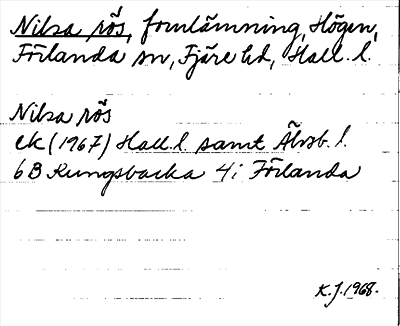 Nilsa rös, fornlämning, Högen,
Förlanda sn, Fjäre hd, Hall. l.
Nilsa rös
ek (1967) Hall. l. samt Älvsb. l.
6B Kungsbacka 4i Förlanda
K.J. 1968.